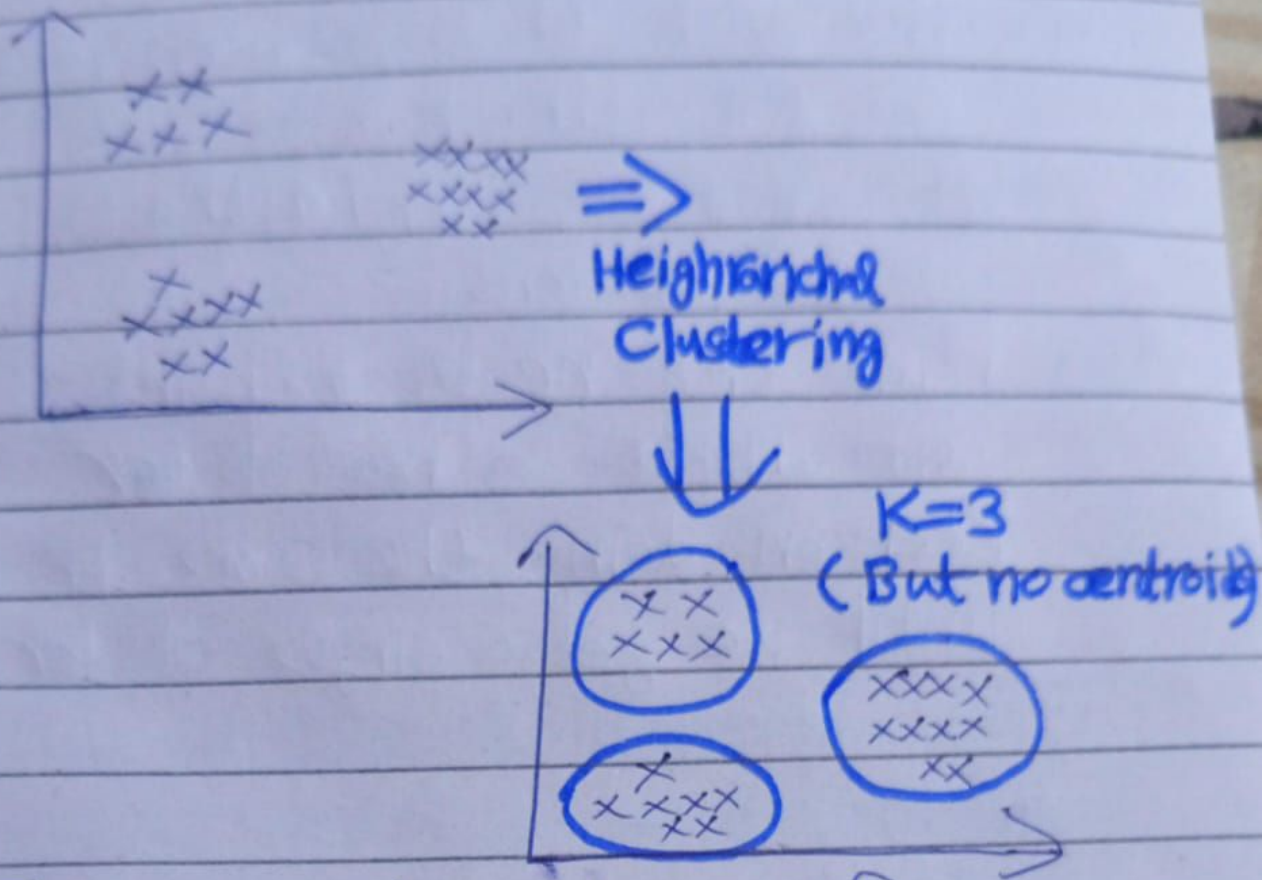 Heighrarichal
Clustering
K=3
(But no centroids)